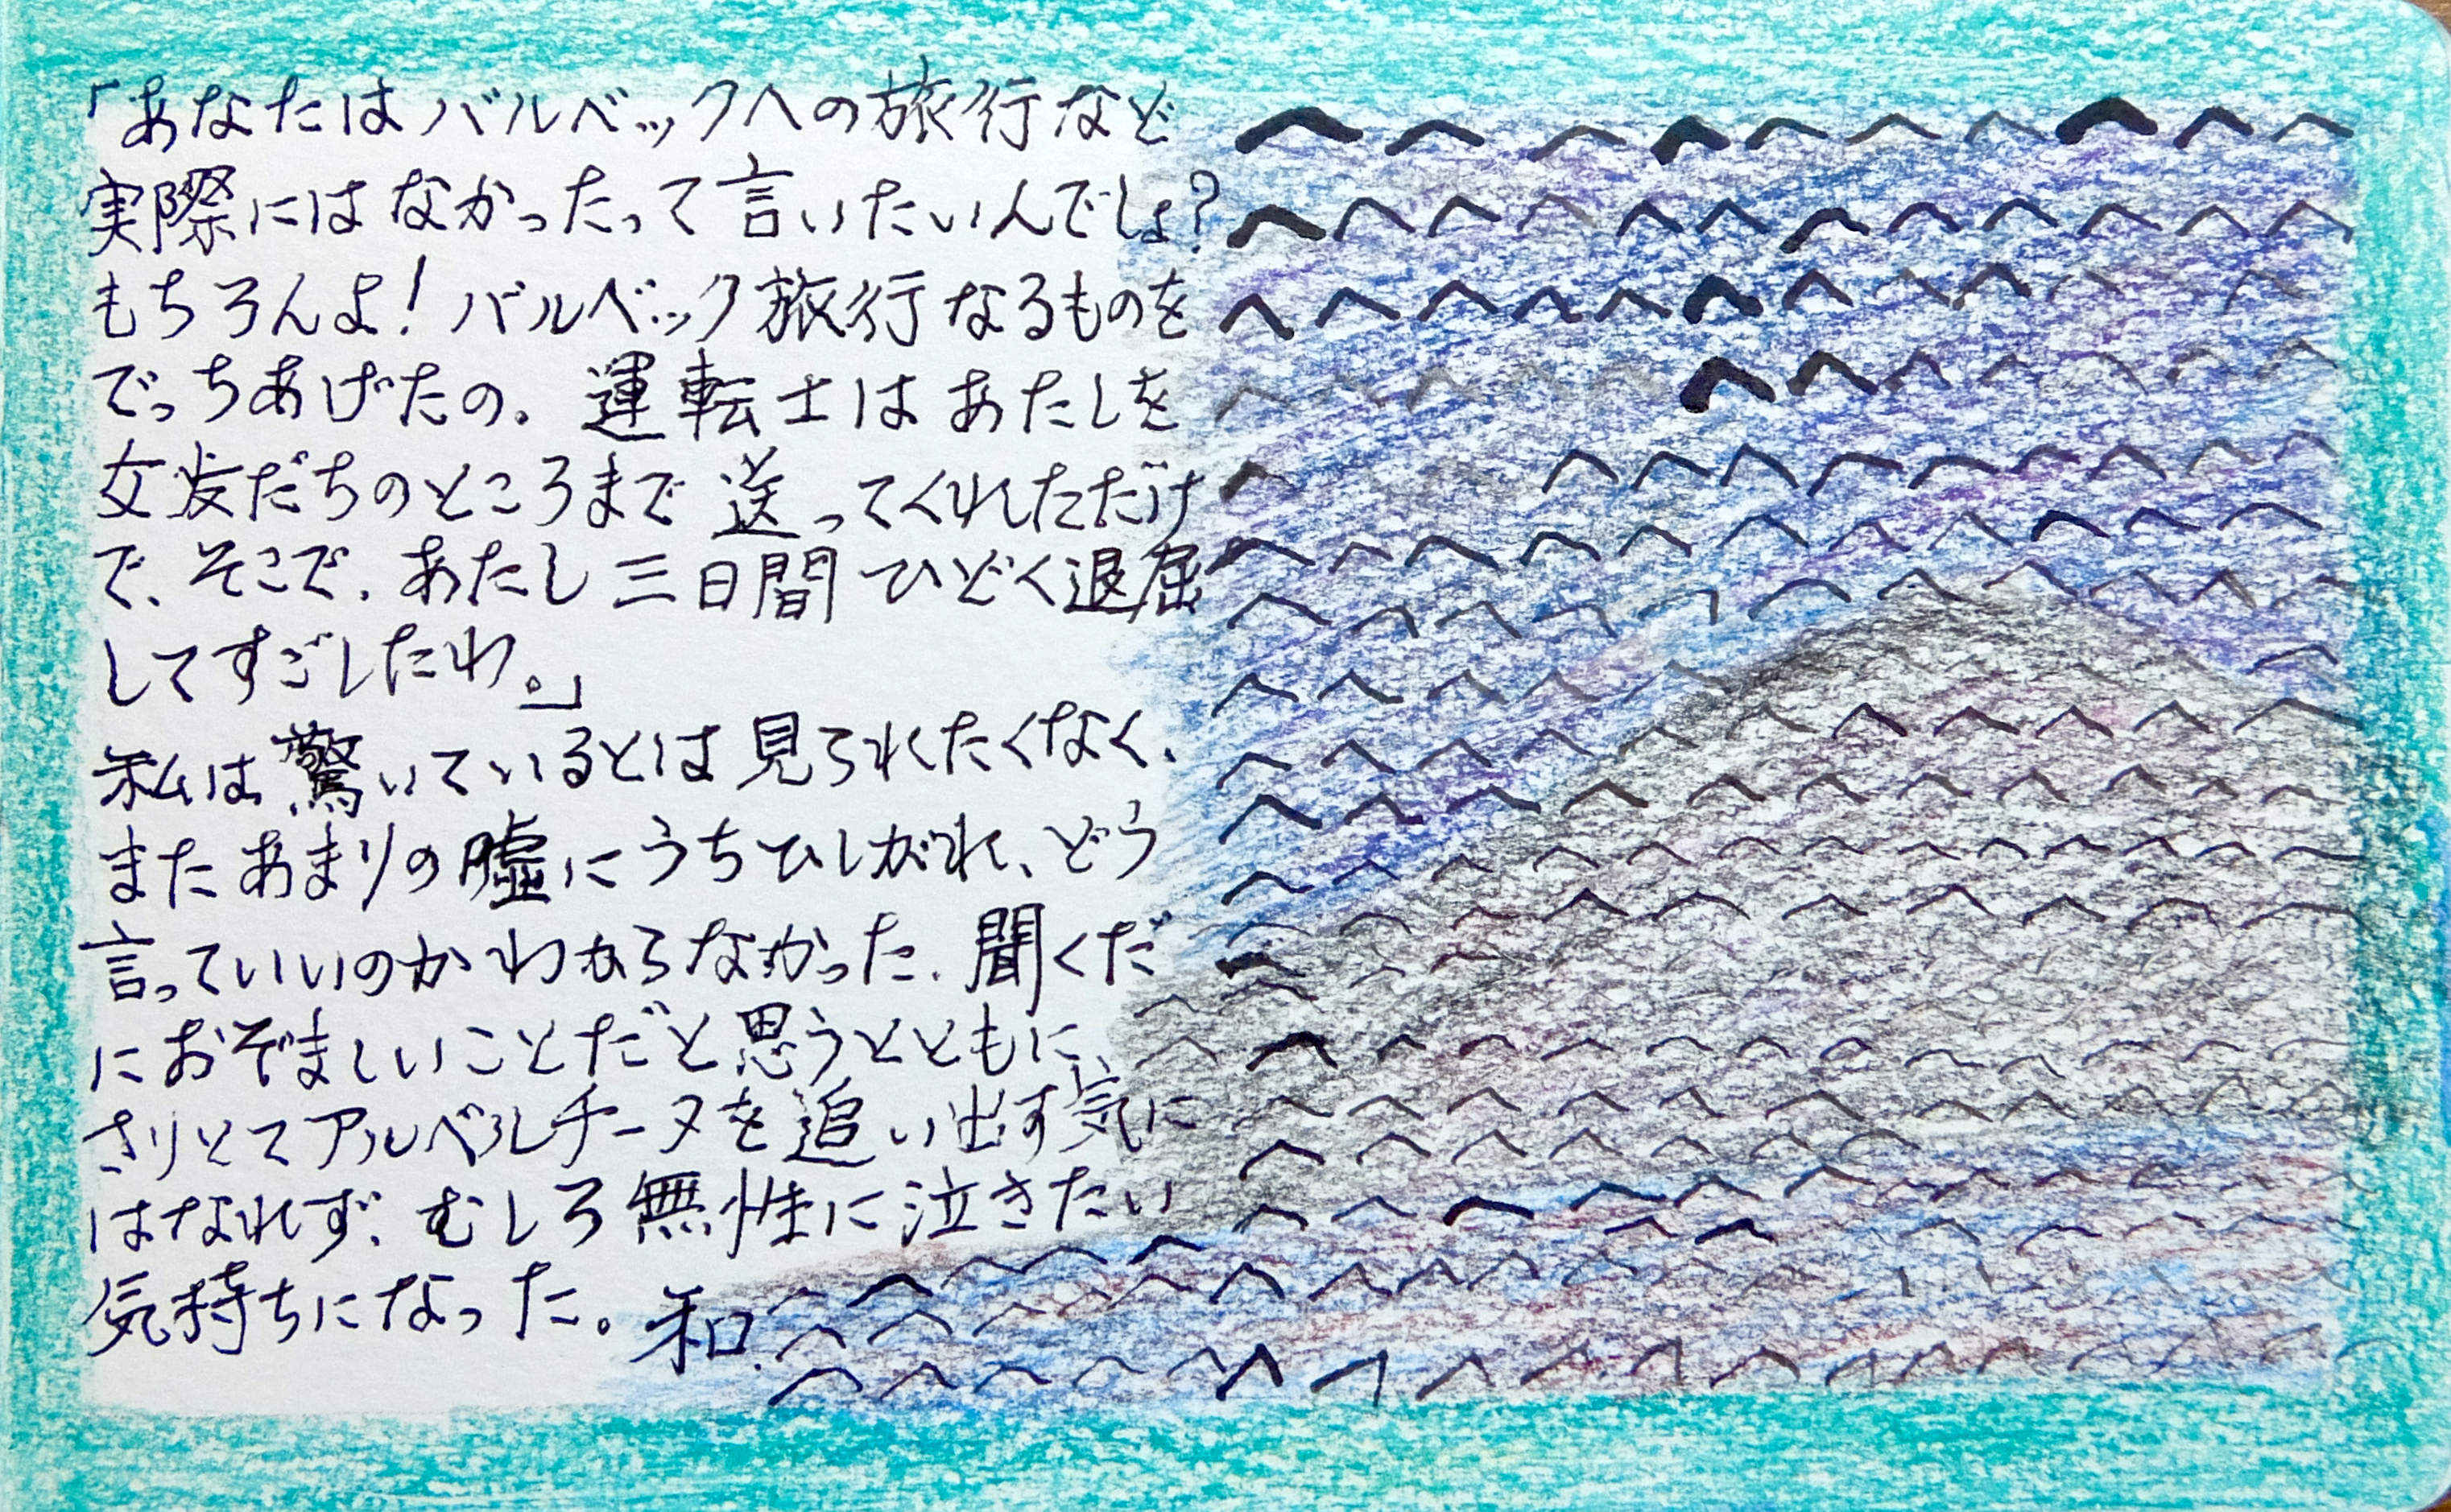 「あなたはバルベックへの旅行など
実際にはなかったって言いたいんでしょ?
もちろんよ!バルベック旅行なるものを
でっちあげたの。運転士はあたしを
女友だちのところまで送ってくれただけ
で、そこで、あたし三日間ひどく退屈
してすごしたわ。」
私は驚いているとは見られたくなく、
またあまりの嘘にうちひしがれ、どう
言っていいのかわからなかった。聞くだ
におぞましいことだと思うとともに、
さりとてアルベルチーヌを追い出す気に
はなれず、むしろ無性に泣きたい
気持ちになった。和.